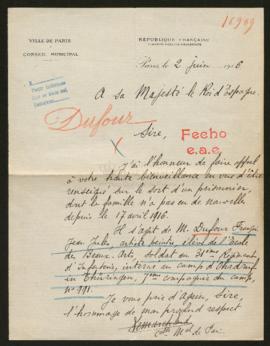 16909
VILLE DE PARIS
CONSEIL MUNICIPAL
RÉPUBLIQUE FRANÇAISE
LIBERTÉ ÉGALITÉ FRATERNITÉ
Paris le 2 juin 1916
A sa Majesté le Roi d'Espagne
Dufour
Sire,
Fecho
e.a.c.
J'ai l'honneur de faire appel
à votre haute bienveillance en vue d'être
renseigné sur le sort d'un prisonnier,
dont la famille n'a pas eu de nouvelle
depuis le 17 avril 1916.
Il s'agit de M. Dufour François
Jean Jules, artiste peintre, élève de l'école
des Beaux-Arts, soldat au 31e Régiment
d'Infanterie, interné au camp d'Ohrdruf
in Thüringen, 9me compagnie du camp,
No 991.
Je vous prie d'agréer, Sire,
l'hommage de mon profond respect